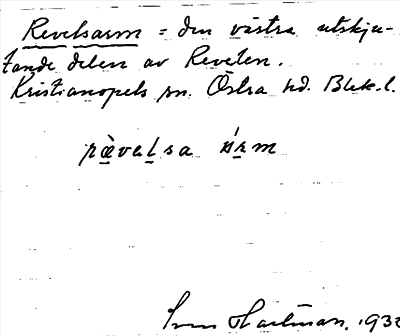 Revelsarm = den västra utskju-
tande delen av Revelen.
Kristianopels sn. Östra hd. Blek. l.
rævalsa arm
Sven Hartman, 1932